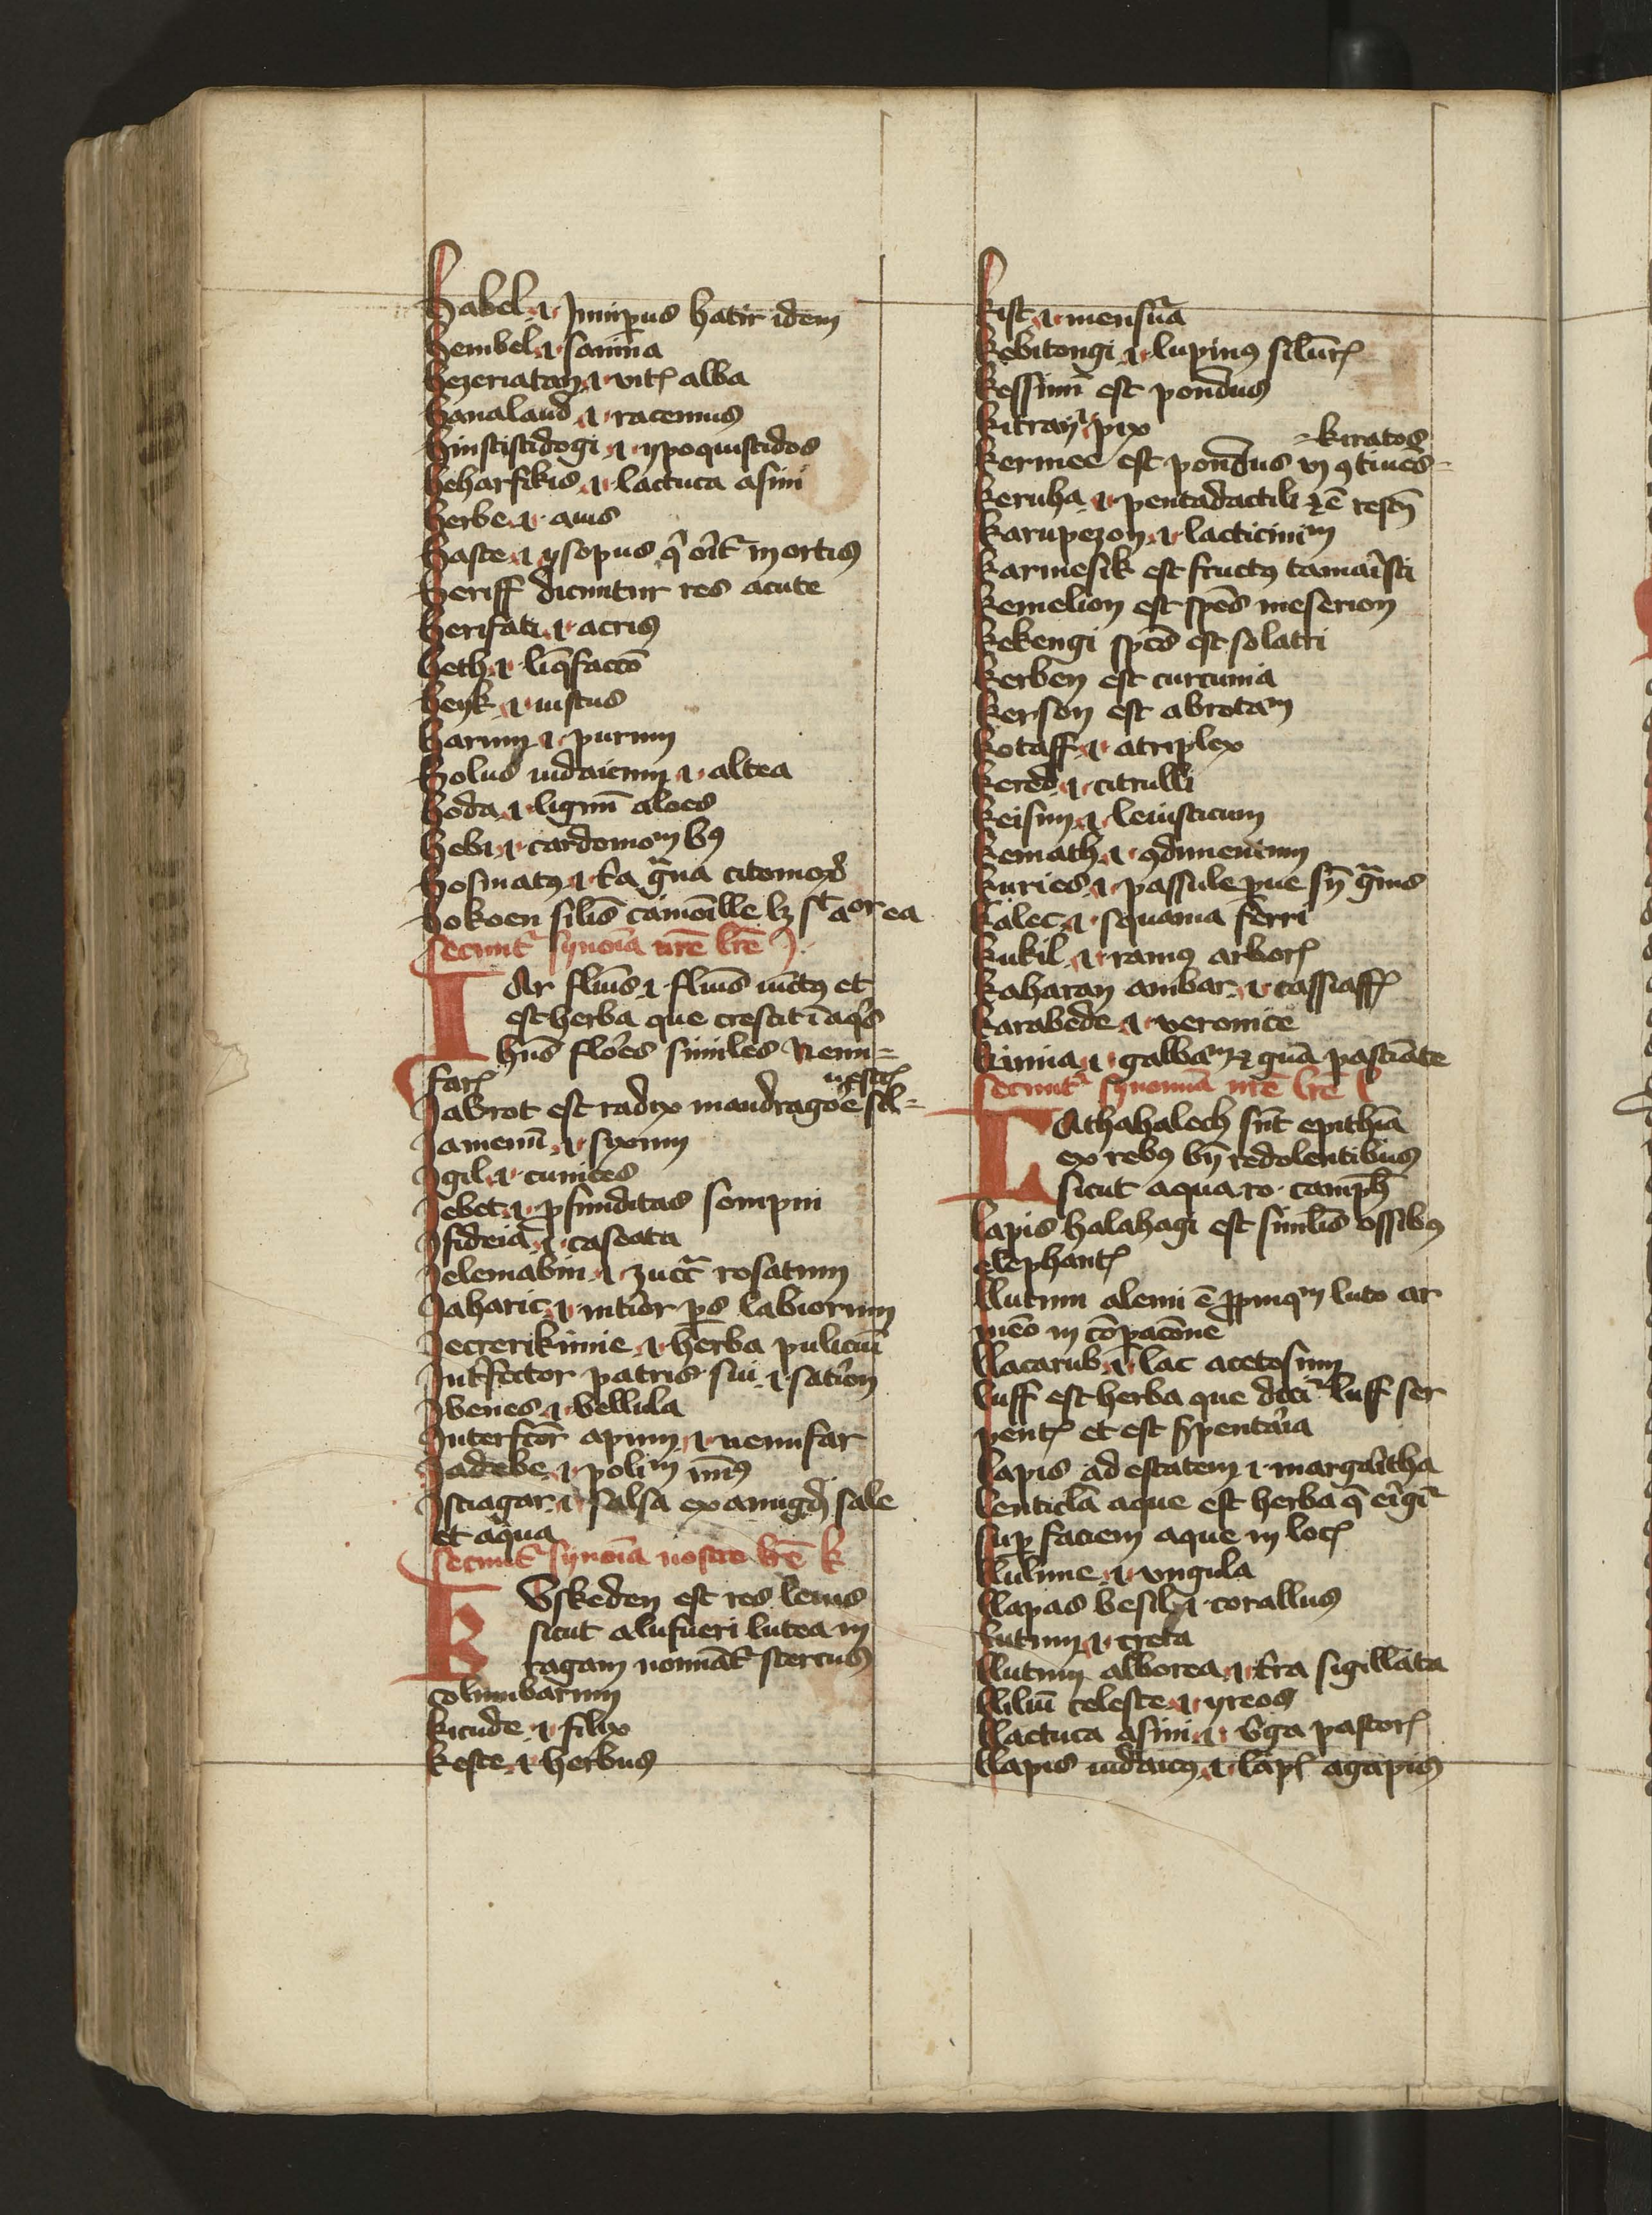 habel .i. Juniperus hatir idem
hembel .i. samina
hezeriatan .i. vitꝭ alba
hanalaud .i. racemus
hinstistidogi .i. ypoquistidos
heharfikis .i. lactuca asini
herbe .i. auis
haste .i. ysopus q̄ orit᷑ in ortis
heriff dicuntur res acute
herifati .i. acris
heth .i. liq̄faccō
heyk .i. iustus
harum .i. purum
holus iudaicum .i. altea
hoda .i. lignū aloes
hebi .i. cardomoᵐ
hosmatꝰ .i. t̄a
hokoen silīs camōille
secunt᷑ synoīa nr̄e lr̄e J
IAr fluuīs .i. fluuīs iūctꝰ et
est herba que crescit ī aq̄s
hn̄s flores similes nenu=
farꝭ
Jabrot est radix mandragoē silꝰ=
uestꝭ
Jamenū .i. syxum
Jgil .i. cunices
Jebet .i. ꝓfunditas sompni
Jsideiā .i. caseata
Jelemabin .i. zucc᷑ rosatum
Jaharic .i. intior ps labiorum
Jecterikinie .i. herba puliciū
Jntfector patris sui .i. sation
Jbenes .i. bellula
Jnterfcōr apium .i. nenufar
Jadebe .i. poliᵐ
Jsciagar .i. salsa ex amigd sale
et aqua
secunt᷑ synoīa nostre lr̄e k
KVskeden est res leuis
sicut alufueri lutea in
ragam nominat᷑ stercus
columbarum
kicude .i. filix
keste .i. herbus
kist .i. mensura
kebitongi .i. lupinꝰ siluēꝭ
kessimi est pondus
kitran .i. pix
kermee est pondus vj ꝯtinēs=
kiratos
keruha .i. pentadactili
karupezon .i. lacticiniᵐ
karmesik est fructꝰ tamaristi
kemelion est spēs meserion
kekengi spēs est solatri
kerben est curcuma
kerson est abrotaᵐ
kotaff .i. atriplex
kered .i. citrulli
keisim .i. leuisticum
kemath .i. ꝯdimentum
kuries .i. passule pue sn̄ granis
kalec .i. squama ferri
kukil .i. ramꝰ arborꝭ
kaharan ambar .i. cassiaff
karabede .i. veronice
kinnia .i. galbaᵐ
secunt᷑ synonīa nr̄e lr̄e l
LAthahalech sūt epithīa
ex rebꝰ bn̄ redolentibus
sicut aqua ro. camph
lapis halahagi est similis ossibꝰ
elephantꝭ
llutum alemi ē ꝓpinqᵐ luto ar
meō in cōpacōne
llacarub .i. lac acetosum
luff est herba que dicit᷑ luff ser
pentꝭ et est spentaria
lapis ad estatem .i. margaritha
lenticla aque est herba q̄
sup faciem aque in locꝭ
llulime .i. vngula
llapas besil .i. corallus
lutum .i. creta
llutum alborea .i. t̄ra sigillata
lliliū celeste .i. yreos
llactuca asini .i. v̄ga pastorꝭ
llapis iudaicꝰ .i. lapꝭ agapis